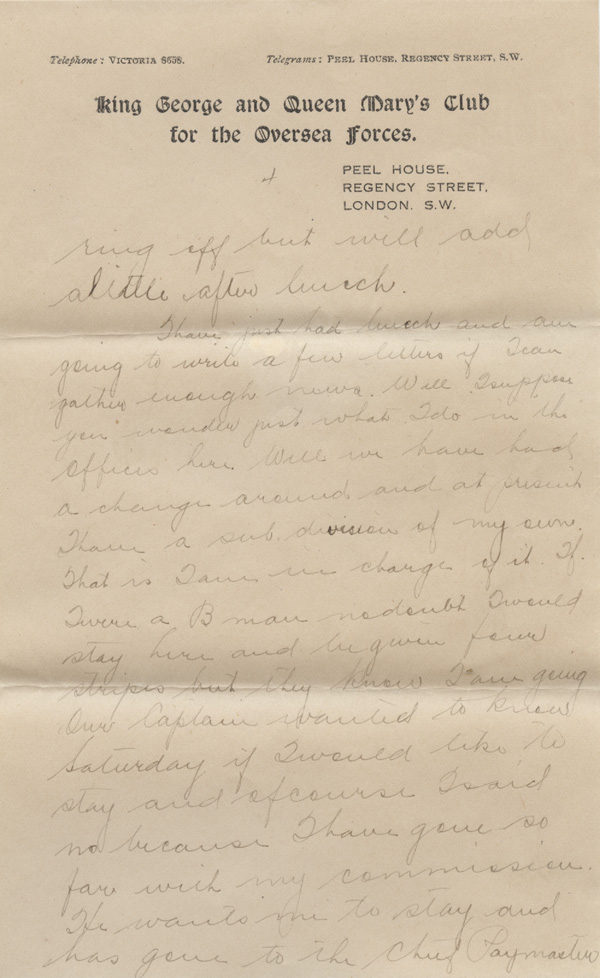 Telephone: VICTORIA 8638.
Telegrams: PEEL HOUSE, REGENCY STREET, S.W.
King George and Queen Mary's Club
for the Oversea Forces.
PEEL HOUSE,
REGENCY STREET,
LONDON. S.W.
4
ring off but will add
a little after lunch.
I have just had lunch and am
going to write a few letters if I can
gather enough news. Well I suppose
you wonder just what I do in the
offices here. Well we have had
a change around and at present
I have a sub. division of my own.
That is I am in charge of it. If
I were a B man no doubt I would
stay here and be given four
stripes but they know I am going
Our Captain wanted to know
Saturday if I would like to
stay and of course I said
no because I have gone so
far with my commission.
He wants me to stay and
has gone to the Chief Paymaster